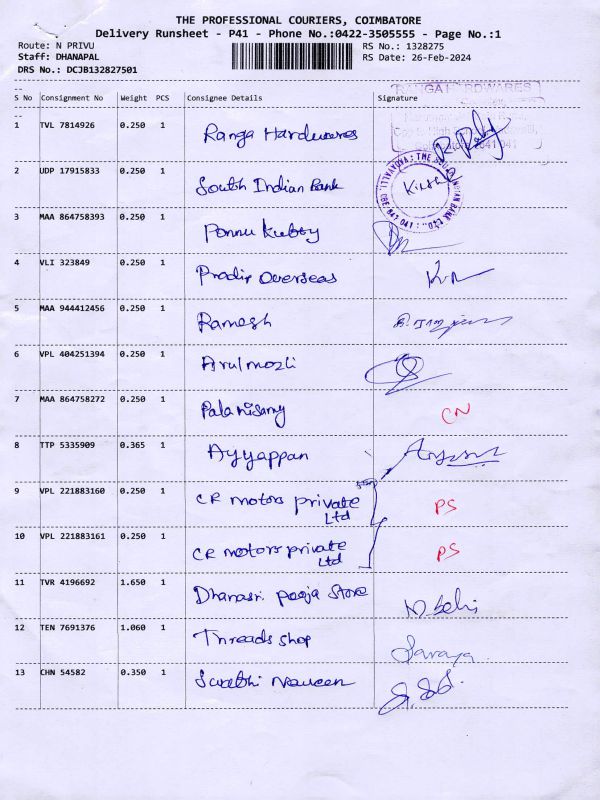 THE PROFESSIONAL COURIERS, COIMBATORE
Delivery Runsheet - P41 - Phone No.:0422-3505555 - Page No.:1
Route: N PRIVU
RS No.: 1328275
Staff: DHANAPAL
RS Date: 26-Feb-2024
DRS No.: DCJB132827501
S No Consignment No Weight PCS Consignee Details Signature
RANGA HARDWARES
1 TVL 7814926 0.250 1 Ranga Hardwares
2 UDP 17915833 0.250 1 South Indian Bank
3 MAA 864758393 0.250 1 Ponnu Kutty
4 VLI 323849 0.250 1 Pradip Overseas
5 MAA 944412456 0.250 1 Ramesh
6 VPL 404251394 0.250 1 Arulmozli
7 MAA 864758272 0.250 1 Palanisamy CN
8 TTP 5335909 0.365 1 Ayyappan
9 VPL 221883160 0.250 1 CR motors private PS
Ltd
10 VPL 221883161 0.250 1 CR motors private PS
Ltd
11 TVR 4196692 1.650 1 Dhanasri pooja Store
12 TEN 7691376 1.060 1 Threads shop
13 CHN 54582 0.350 1 Surabhi Naveen